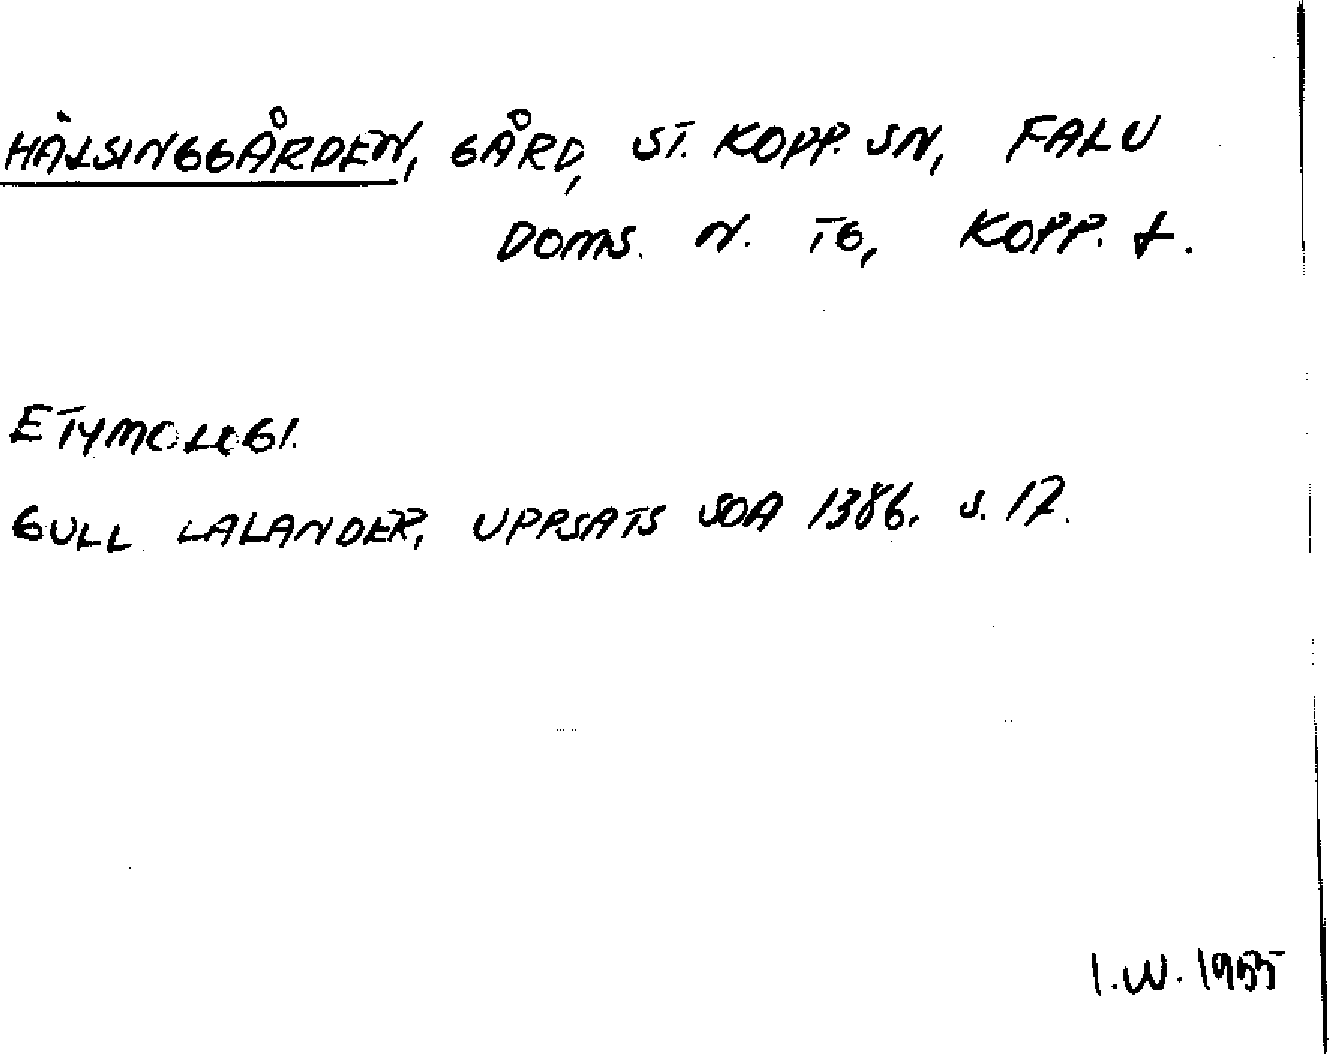 HÄLSINGGÅRDEN, GÅRD, ST. KOPP. SN, FALU
DOMS. N. TG, KOPP. L.
ETYMOLOGI.
GULL LALANDER, UPPSATS SOA 1386. S. 17.
I.W. 1955